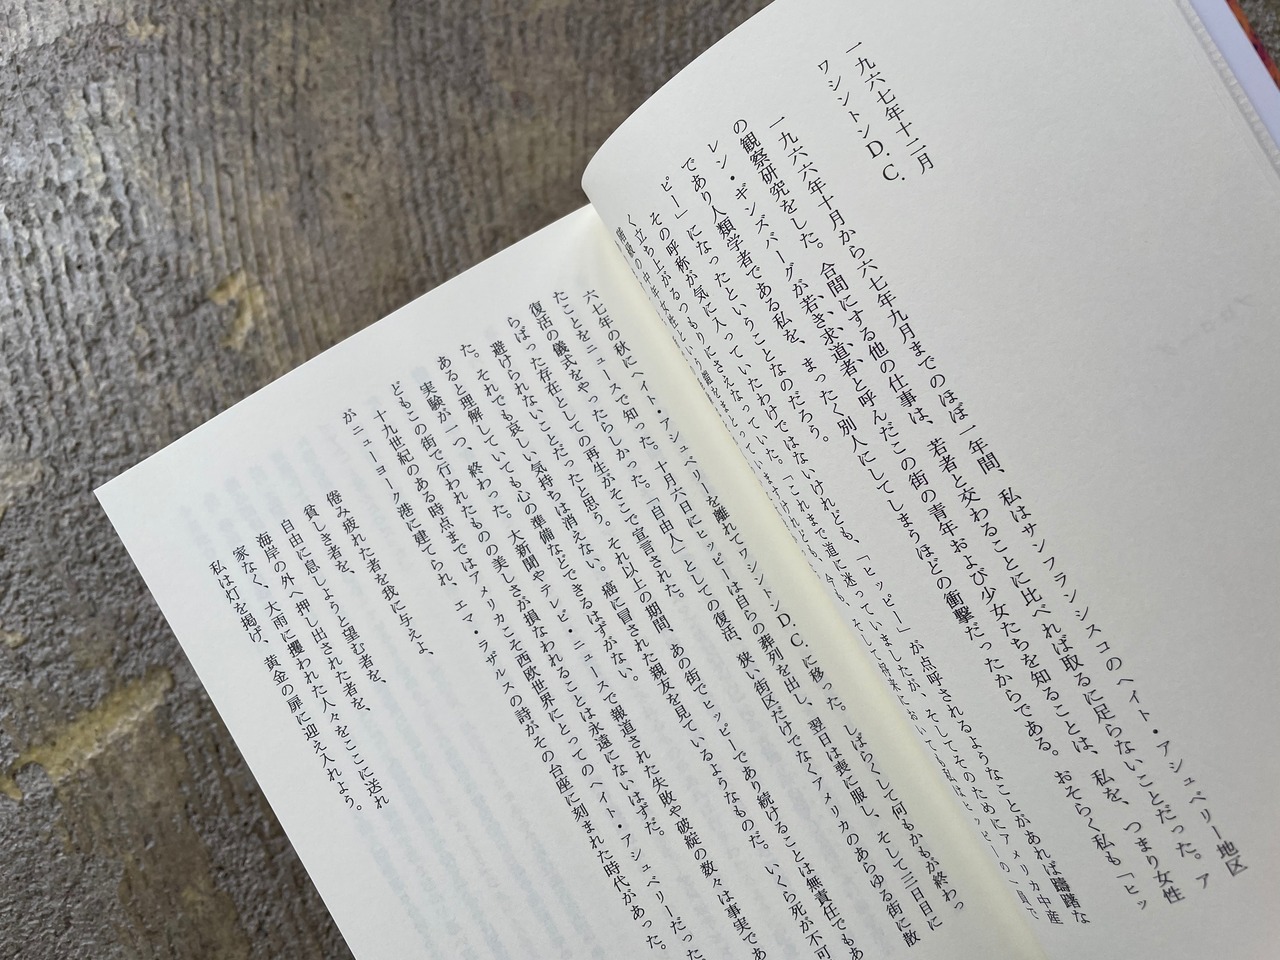 一九六七年十二月
ワシントンD.C.
一九六六年十月から六七年九月までのほぼ一年間、私はサンフランシスコのヘイト・アシュベリー地区
の観察研究をした。合間にする他の仕事は、若者と交わることに比べれば取るに足らないことだった。ア
レン・ギンズバーグが若き求道者と呼んだこの街の青年および少女たちを知ることは、私を、つまり女性
であり人類学者である私を、まったく別人にしてしまうほどの衝撃だったからである。おそらく私も「ヒッ
ピー」になったということなのだろう。
その呼称が気に入っていたわけではないけれども、「ヒッピー」が点呼されるようなことがあれば躊躇な
く立ち上がるつもりにさえなっていた。「これまで道に迷っていましたが、そしてそのためにアメリカ中産
六七年の秋にヘイト・アシュベリーを離れてワシントンD.C.に移った。しばらくして何もかもが終わっ
たことをニュースで知った。十月六日にヒッピーは自らの葬列を出し、翌日は喪に服し、そして三日目に
復活の儀式をやったらしかった。「自由人」としての復活、狭い街区だけでなくアメリカのあらゆる街に散
らばった存在としての再生がそこで宣言された。
避けられないことだったと思う。それ以上の期間、あの街でヒッピーであり続けることは無責任でもあ
た。それでも哀しい気持ちは消えない。癌に冒された親友を見ているようなものだ。いくら死が不可
あると理解していても心の準備などできるはずがない。
実験が一つ、終わった。大新聞やテレビ・ニュースで報道された失敗や破綻の数々は事実であ
どもこの街で行われたものの美しさが損なわれることは永遠にないはずだ。
十九世紀のある時点まではアメリカこそ西欧世界にとってのヘイト・アシュベリーだった、
がニューヨーク港に建てられ、エマ・ラザルスの詩がその台座に刻まれた時代があった。
倦み疲れた者を我に与えよ、
貧しき者を、
自由に息しようと望む者を、
海岸の外へ押し出された者を、
家なく、大雨に攫われた人々をここに送れ
私は灯を掲げ、黄金の扉に迎え入れよう。